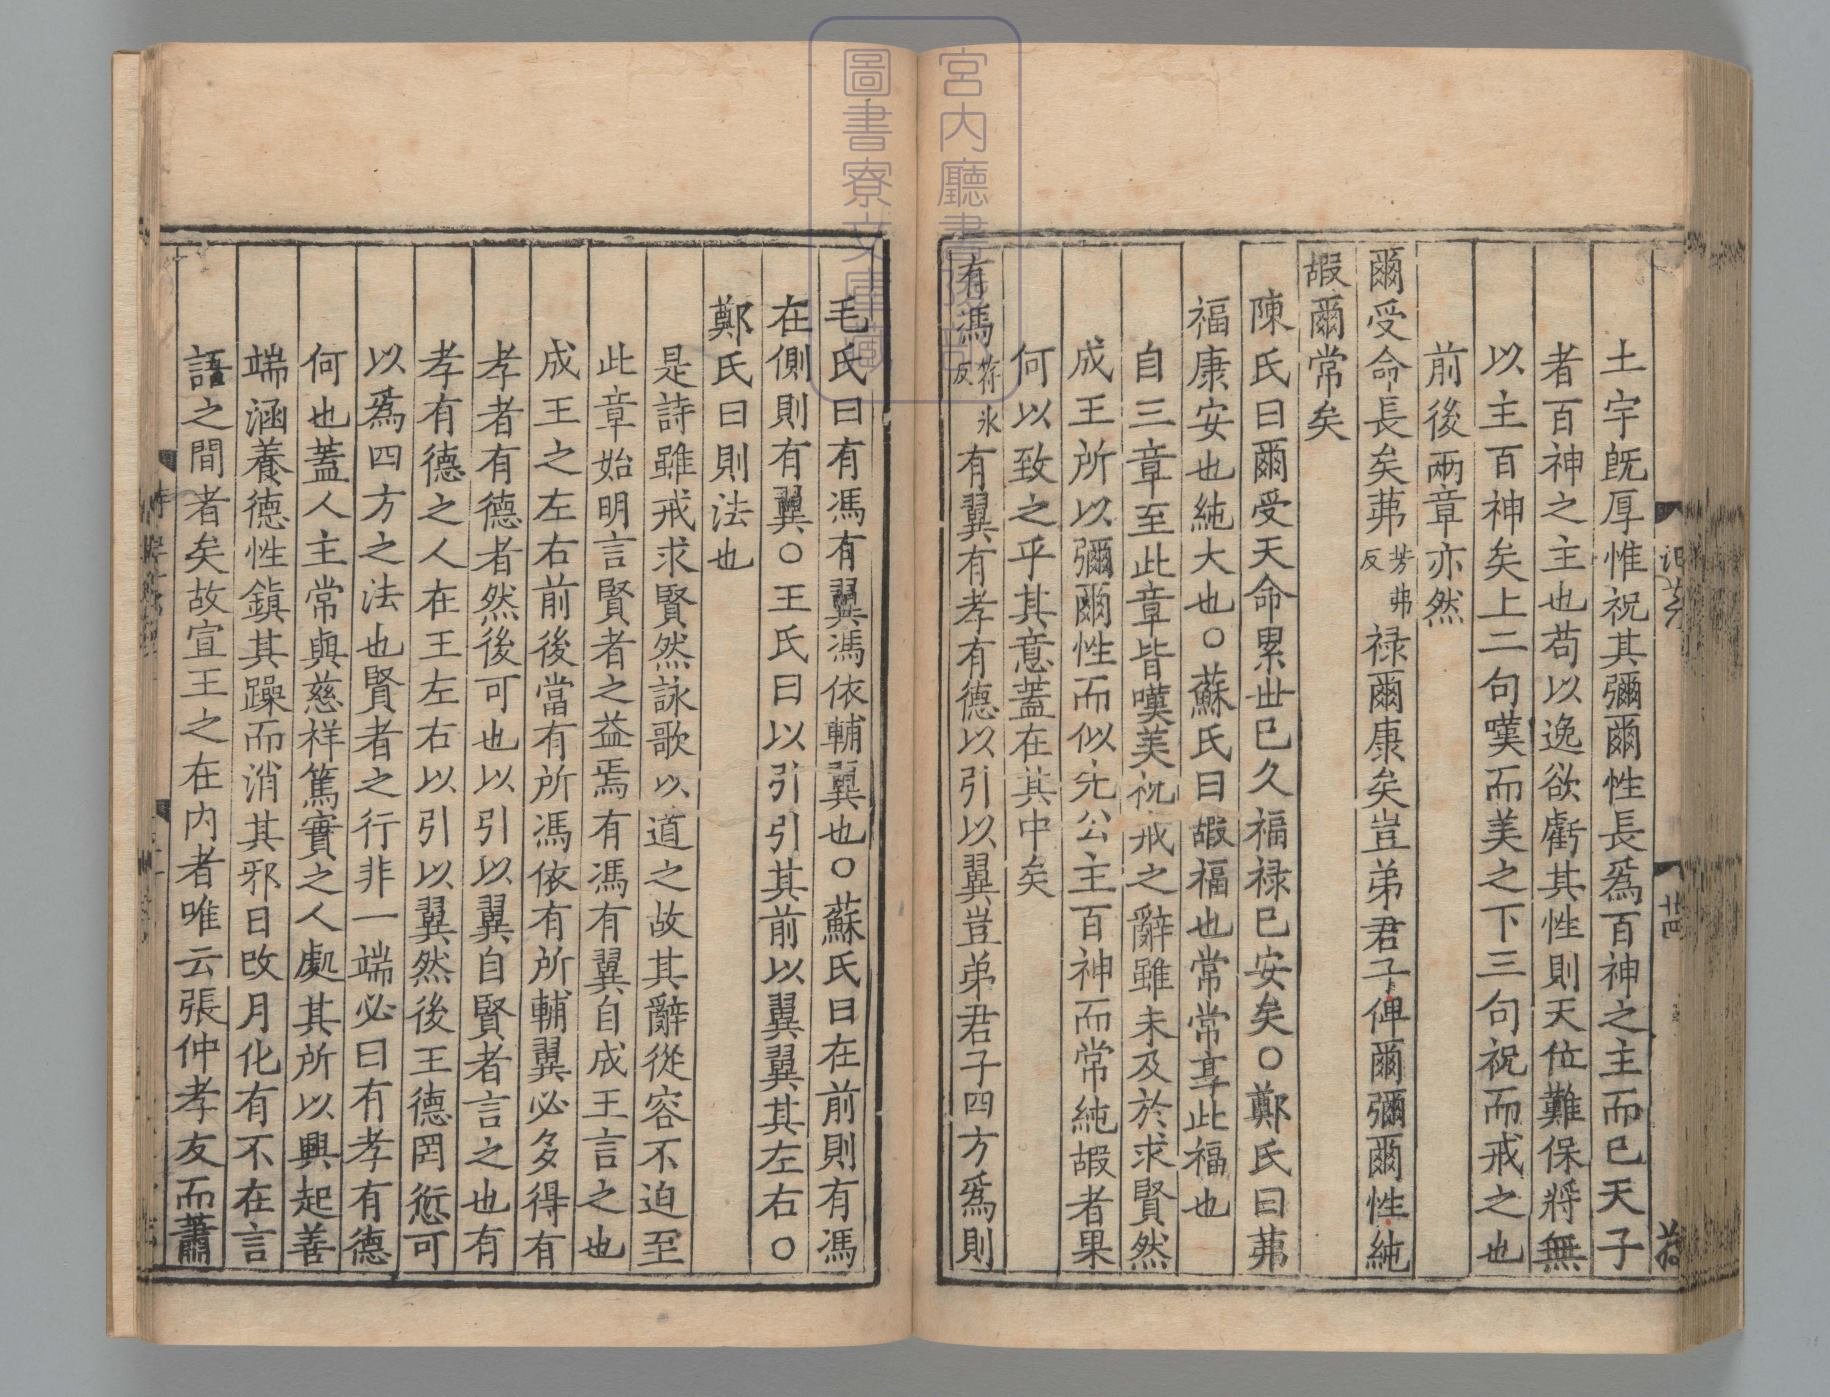 土宇旣厚惟祝其彌爾性長爲百神之主而已天子
者百神之主也苟以逸欲虧其性則天位難保將無
以主百神矣上二句嘆而美之下三句祝而戒之也
前後兩章亦然
爾受命長矣茀芳弗反祿爾康矣豈弟君子俾爾彌爾性純
嘏爾常矣
陳氏曰爾受天命累世已久福祿已安矣○鄭氏曰茀
福康安也純大也○蘇氏曰嘏福也常常享此福也
自三章至此章皆嘆美祝戒之辭雖未及於求賢然
成王所以彌爾性而似先公主百神而常純嘏者果
何以致之乎其意蓋在其中矣
有馮符氷反有翼有孝有德以引以翼豈弟君子四方爲則
毛氏曰有馮有翼馮依輔翼也○蘇氏曰在前則有馮
在側則有翼○王氏曰以引引其前以翼翼其左右○
鄭氏曰則法也
是詩雖戒求賢然詠歌以道之故其辭從容不迫至
此章始明言賢者之益焉有馮有翼自成王言之也
成王之左右前後當有所馮依有所輔翼必多得有
孝者有德者然後可也以引以翼自賢者言之也有
孝有德之人在王左右以引以翼然後王德罔愆可
以爲四方之法也賢者之行非一端必曰有孝有德
何也蓋人主常與慈祥篤實之人處其所以興起善
端涵養德性鎭其躁而消其邪日改月化有不在言
語之間者矣故宣王之在内者唯云張仲孝友而蕭
宮内廳書陵部
圖書寮文庫藏